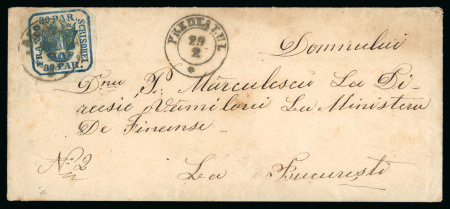 30 PAR.
FRANCO
SCRISOREI.
30 PAR.
PREDEALUL
29
2
Domnului
Dnu P. Mărculescu La Di-
recsie Vămilorŭ La Ministeru
De Finanse
No 2
La Bucuresti